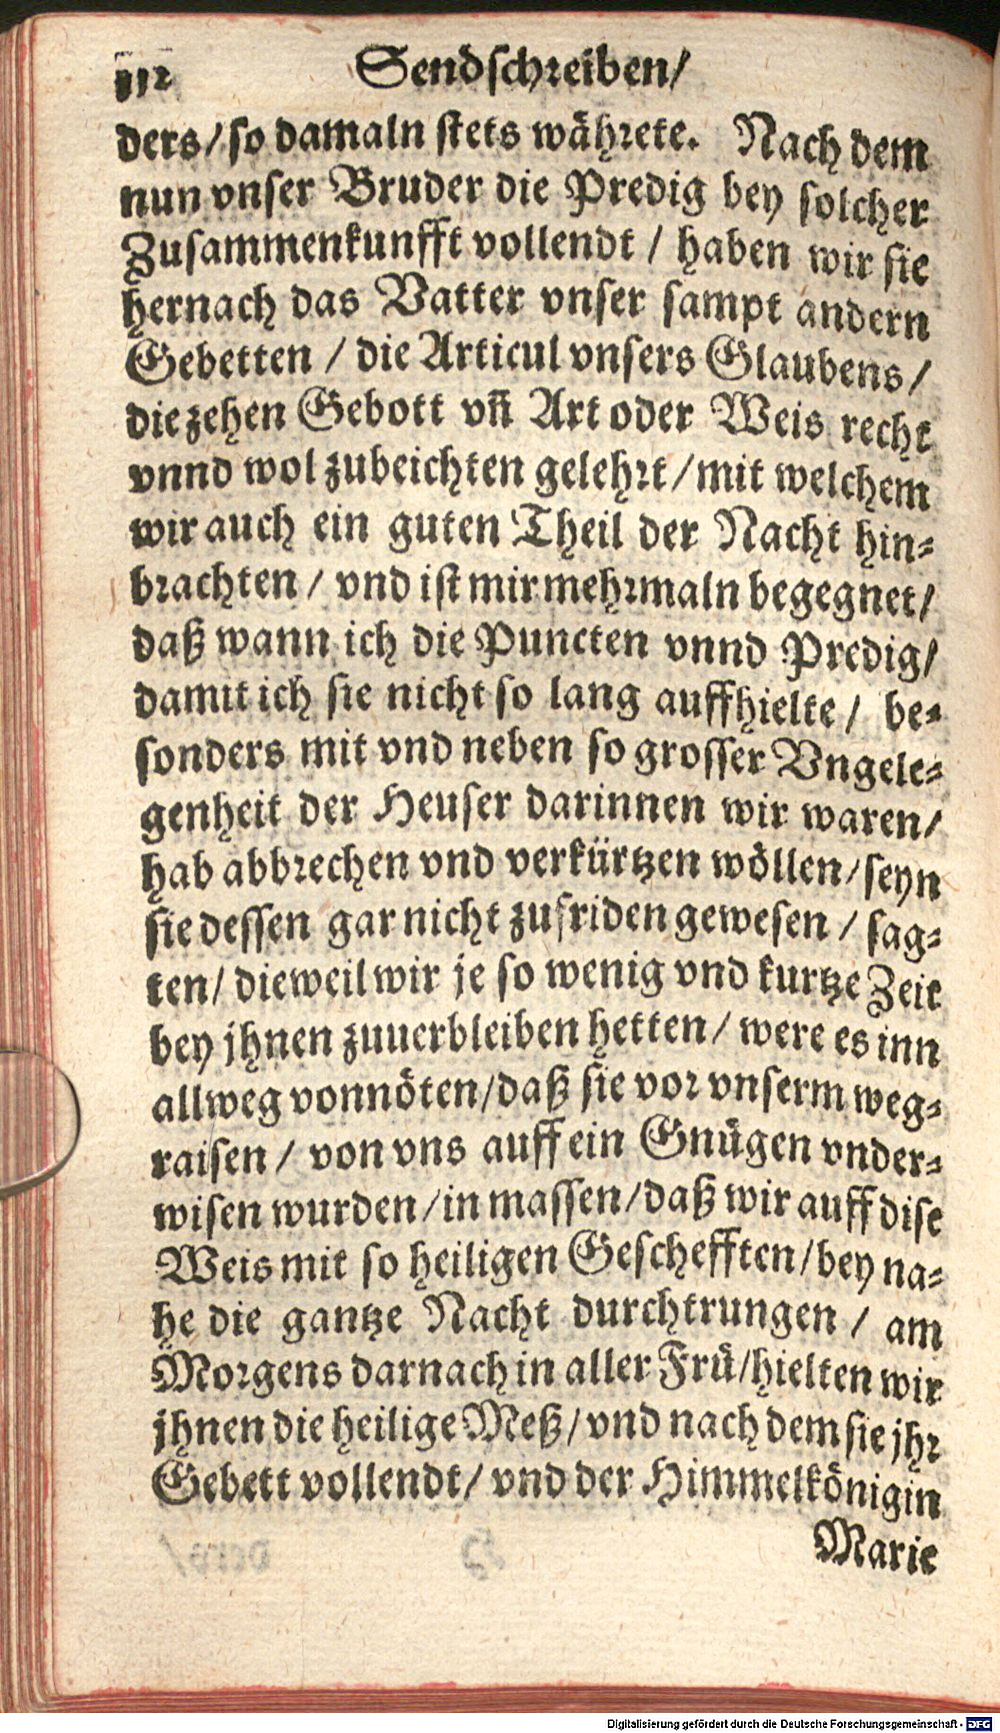 112 Sendschreiben/
ders/ so damaln stets währete. Nach dem
nun vnser Bruder die Predig bey solcher
Zusammenkunfft vollendt / haben wir sie
hernach das Vatter vnser sampt andern
Gebetten / die Articul vnsers Glaubens/
die zehen Gebott vn̄ Art oder Weis recht
vnnd wol zubeichten gelehrt/ mit welchem
wir auch ein guten Theil der Nacht hin-
brachten / vnd ist mir mehrmaln begegnet/
daß wann ich die Puncten vnnd Predig/
damit ich sie nicht so lang auffhielte / be-
sonders mit vnd neben so grosser Vngele-
genheit der Heuser darinnen wir waren/
hab abbrechen vnd verkürtzen wöllen/ seyn
sie dessen gar nicht zufriden gewesen / sag-
ten/ dieweil wir je so wenig vnd kurtze Zeit
bey jhnen zuuerbleiben hetten/ were es inn
allweg vonnöten/ daß sie vor vnserm weg-
raisen / von vns auff ein Gnügen vnder-
wisen wurden / in massen/ daß wir auff dise
Weis mit so heiligen Geschefften/ bey na-
he die gantze Nacht durchtrungen / am
Morgens darnach in aller Frü/ hielten wir
jhnen die heilige Meß/ vnd nach dem sie jhr
Gebett vollendt/ vnd der Himmelkönigin
Marie
Digitalisierung gefördert durch die Deutsche Forschungsgemeinschaft - DFG